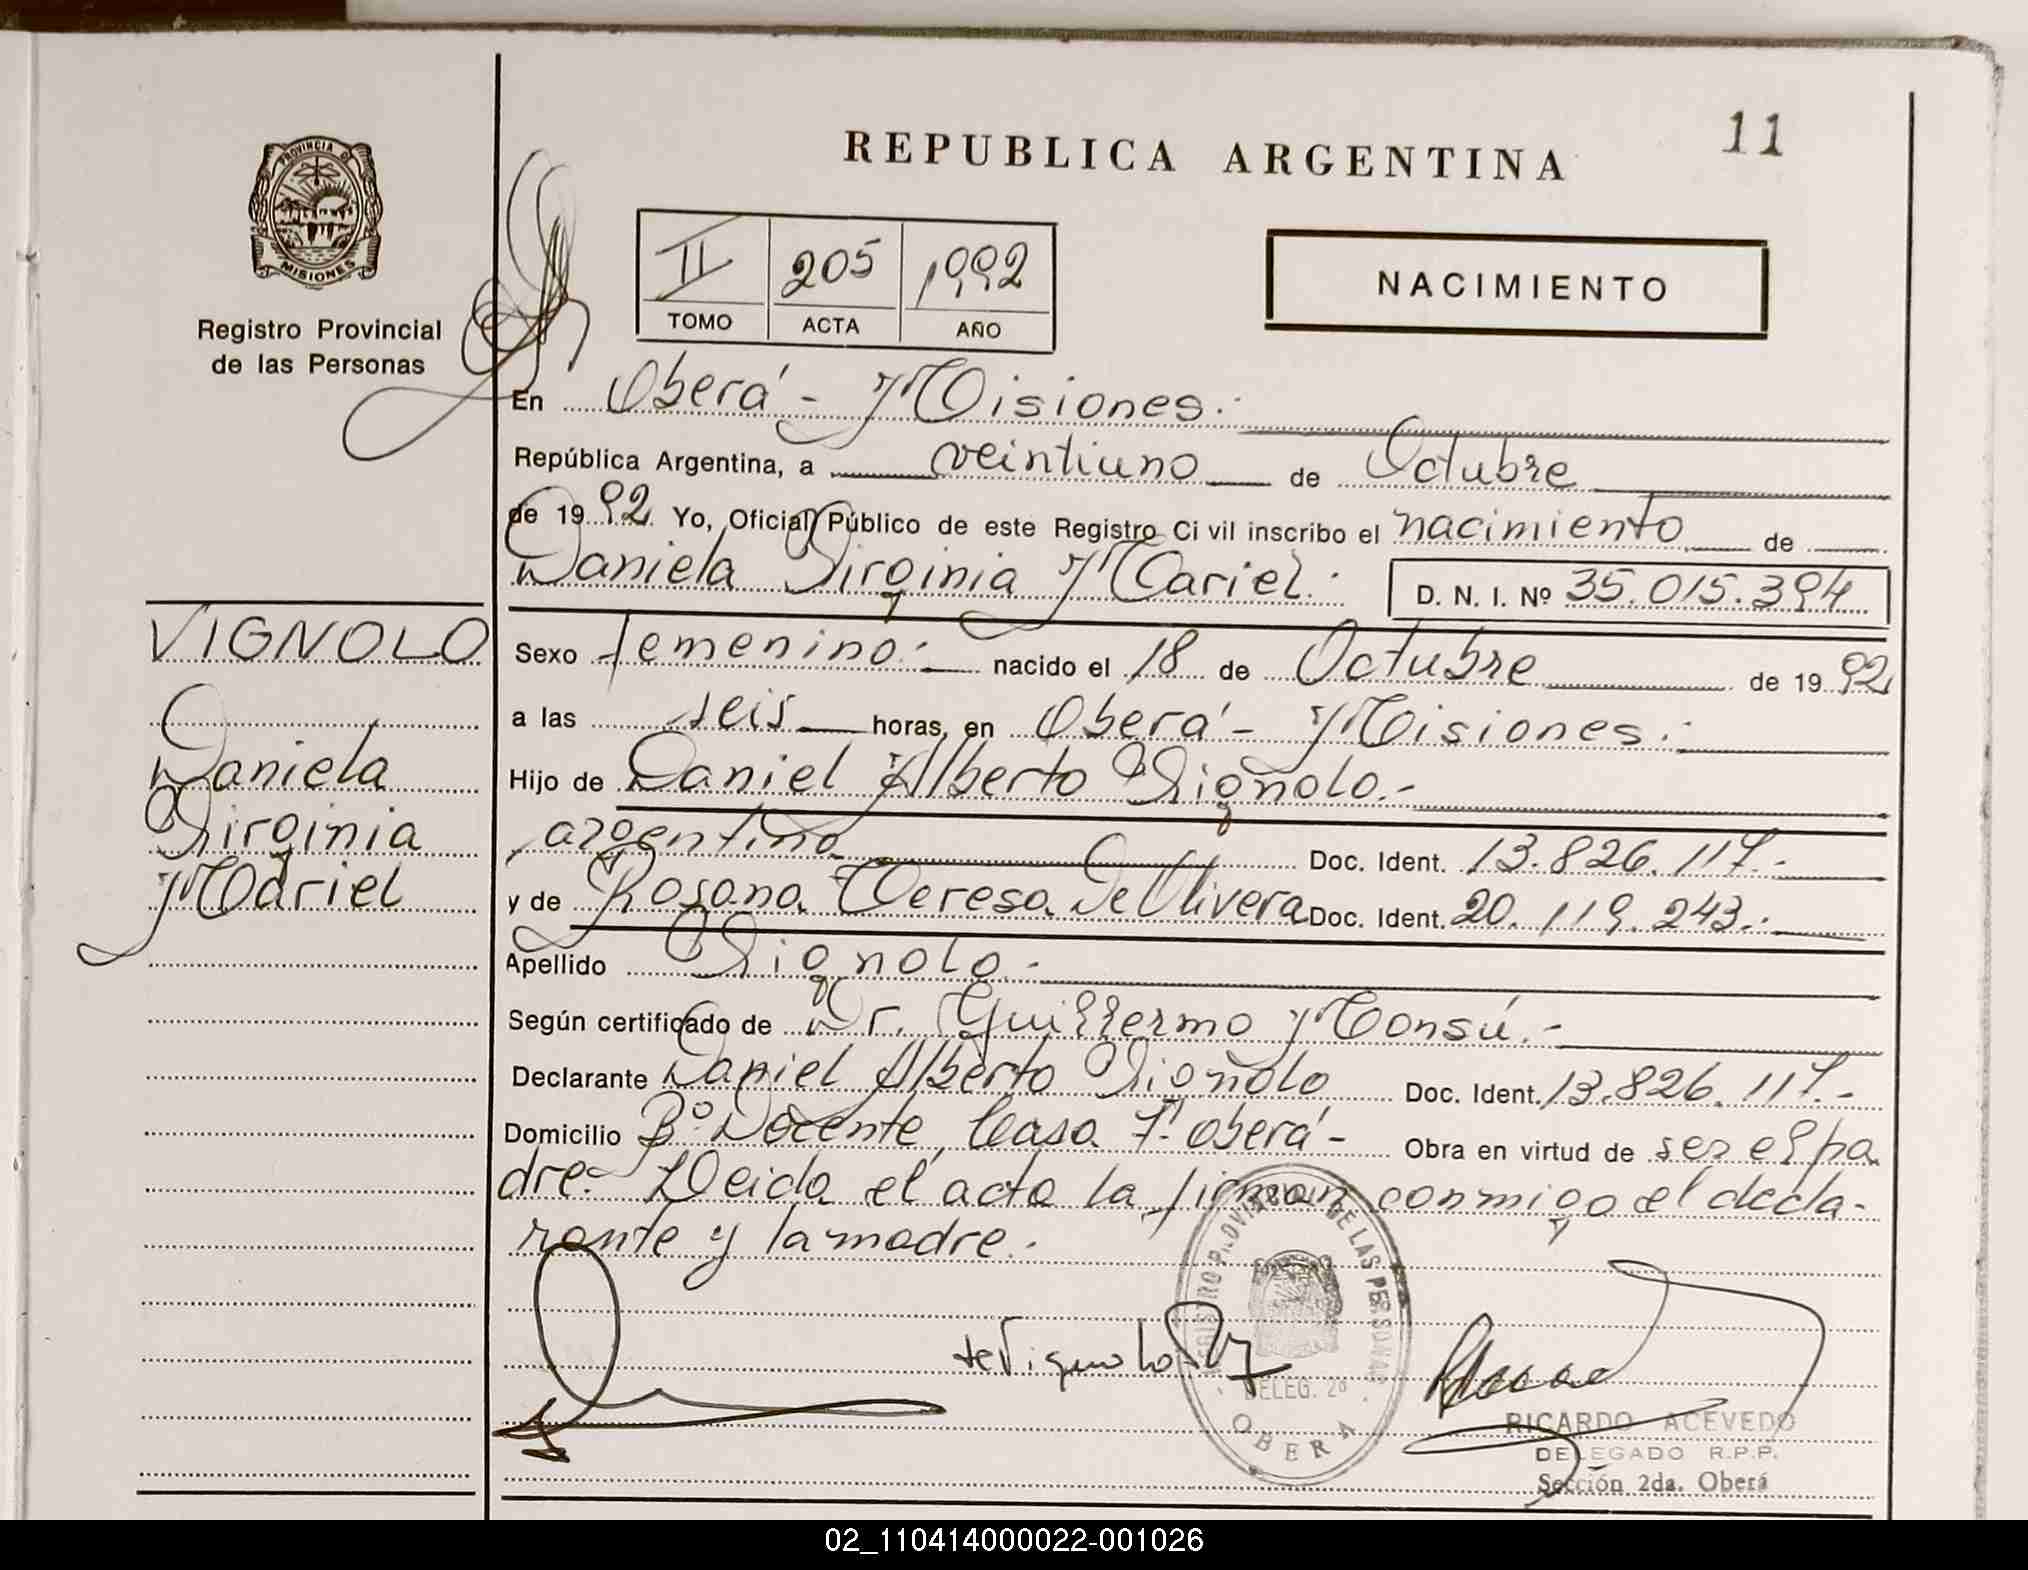 11
REPUBLICA ARGENTINA
PROVINCIA DE
MISIONES
Registro Provincial
de las Personas
II 205 1992
TOMO ACTA AÑO
NACIMIENTO
En Oberá - Misiones.-
República Argentina, a veintiuno de Octubre
de 1992 Yo, Oficial Público de este Registro Ci vil inscribo el nacimiento de
Daniela Virginia Mariel.- D. N. I. Nº 35.015.394
VIGNOLO
Daniela
Virginia
Mariel
Sexo femenino.- nacido el 18 de Octubre de 1992
a las seis horas, en Oberá - Misiones.-
Hijo de Daniel Alberto Vignolo.-
argentino Doc. Ident. 13.826.117.-
y de Rosana Teresa De Olivera Doc. Ident. 20.119.243.-
Apellido Vignolo.-
Según certificado de Dr. Guillermo Monsú.-
Declarante Daniel Alberto Vignolo Doc. Ident. 13.826.117.-
Domicilio Bº Docente, Casa 7. Oberá - Obra en virtud de ser el pa
dre.- Leida el acta la firman conmigo el decla-
rante y la madre.-
REGISTRO PROVINCIAL DE LAS PERSONAS
DELEG. 2º
OBERA
de Vignolo
RICARDO ACEVEDO
DELEGADO R.P.P.
Sección 2da. Oberá
02_110414000022-001026